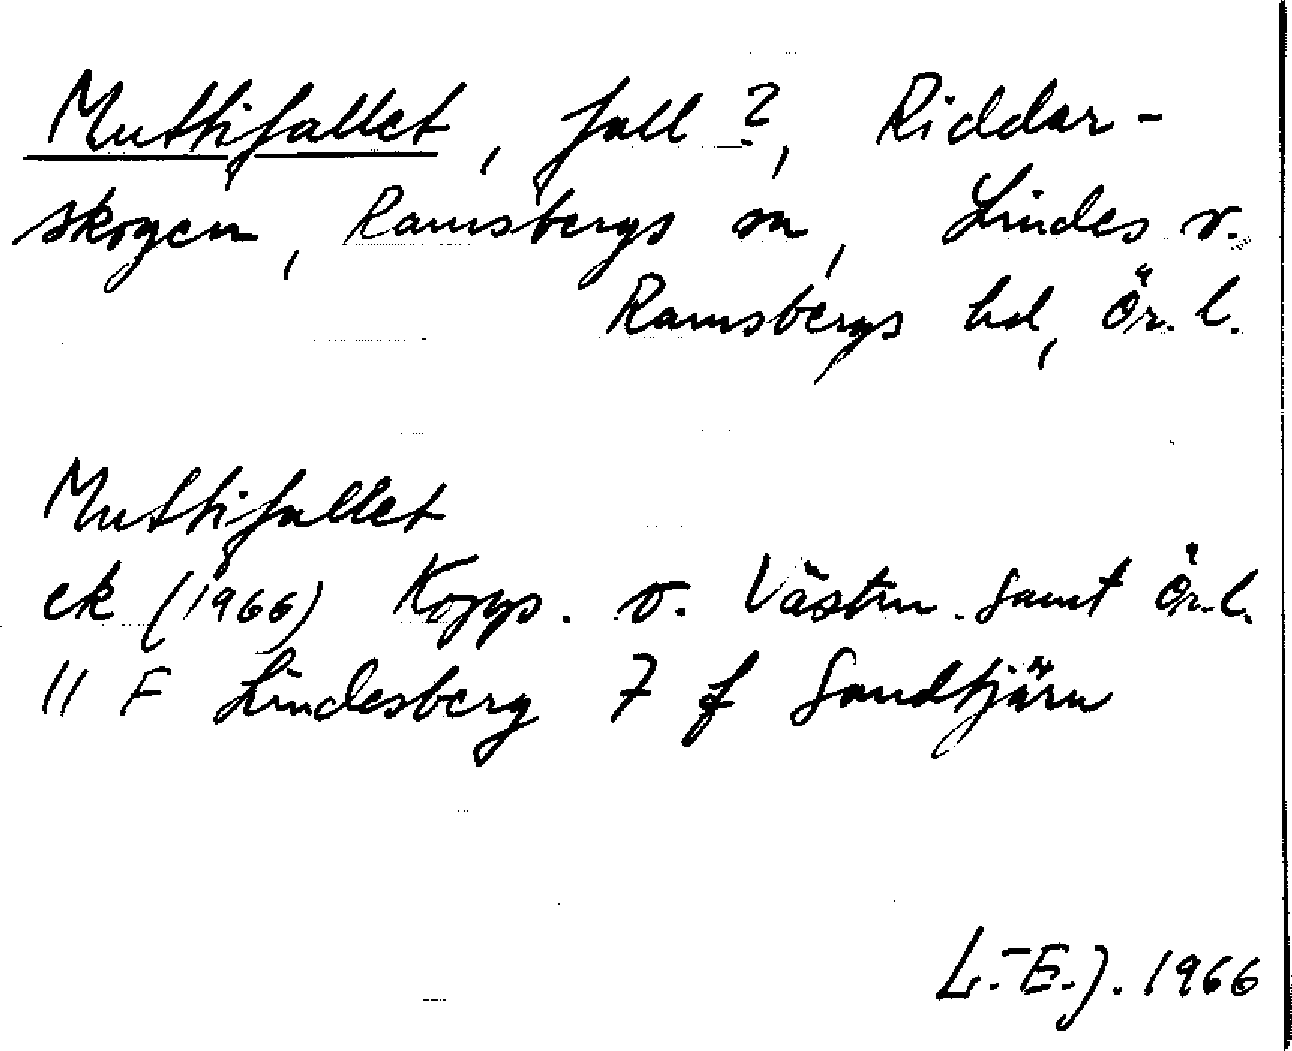 Muttifallet, fall ?, Riddar-
skogen, Ramsbergs sn, Lindes o.
Ramsbergs hd, Ör. l.
Muttifallet
ek (1966) Kopp. o. Västm. samt Ör. l.
11 F Lindesberg 7 f Sandtjärn
L.-E.J. 1966